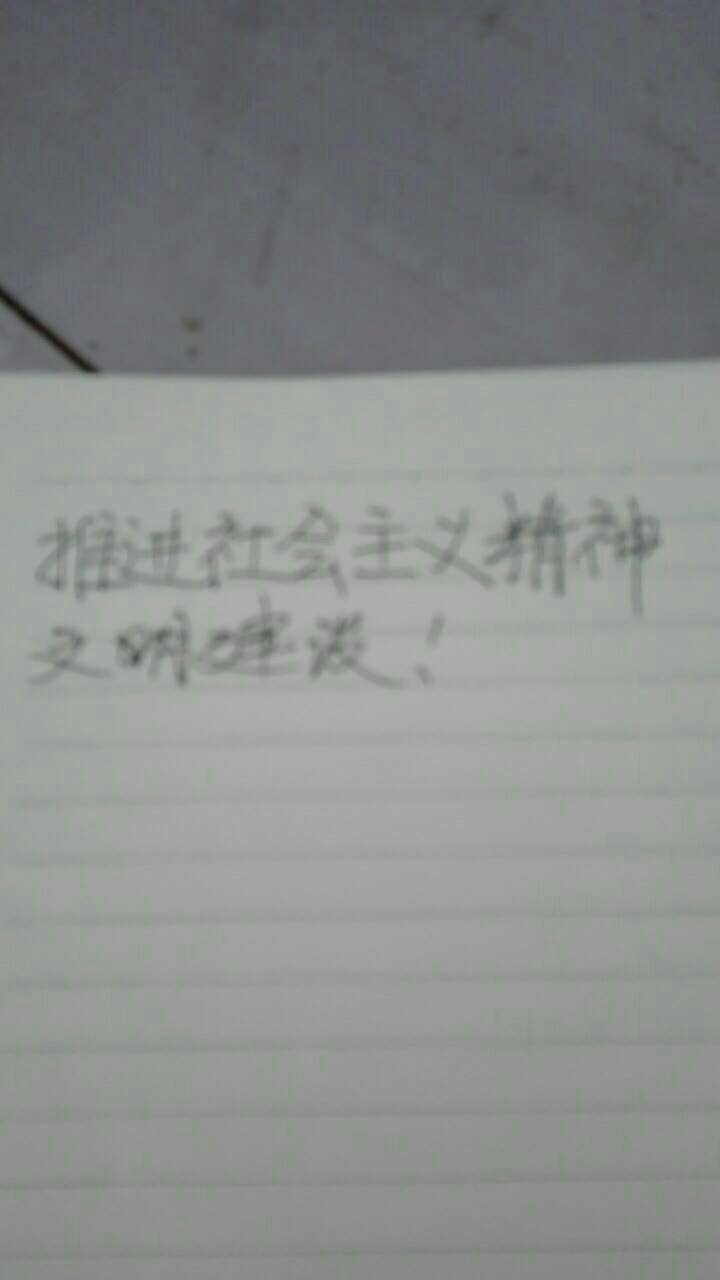 推进社会主义精神
文明建设！